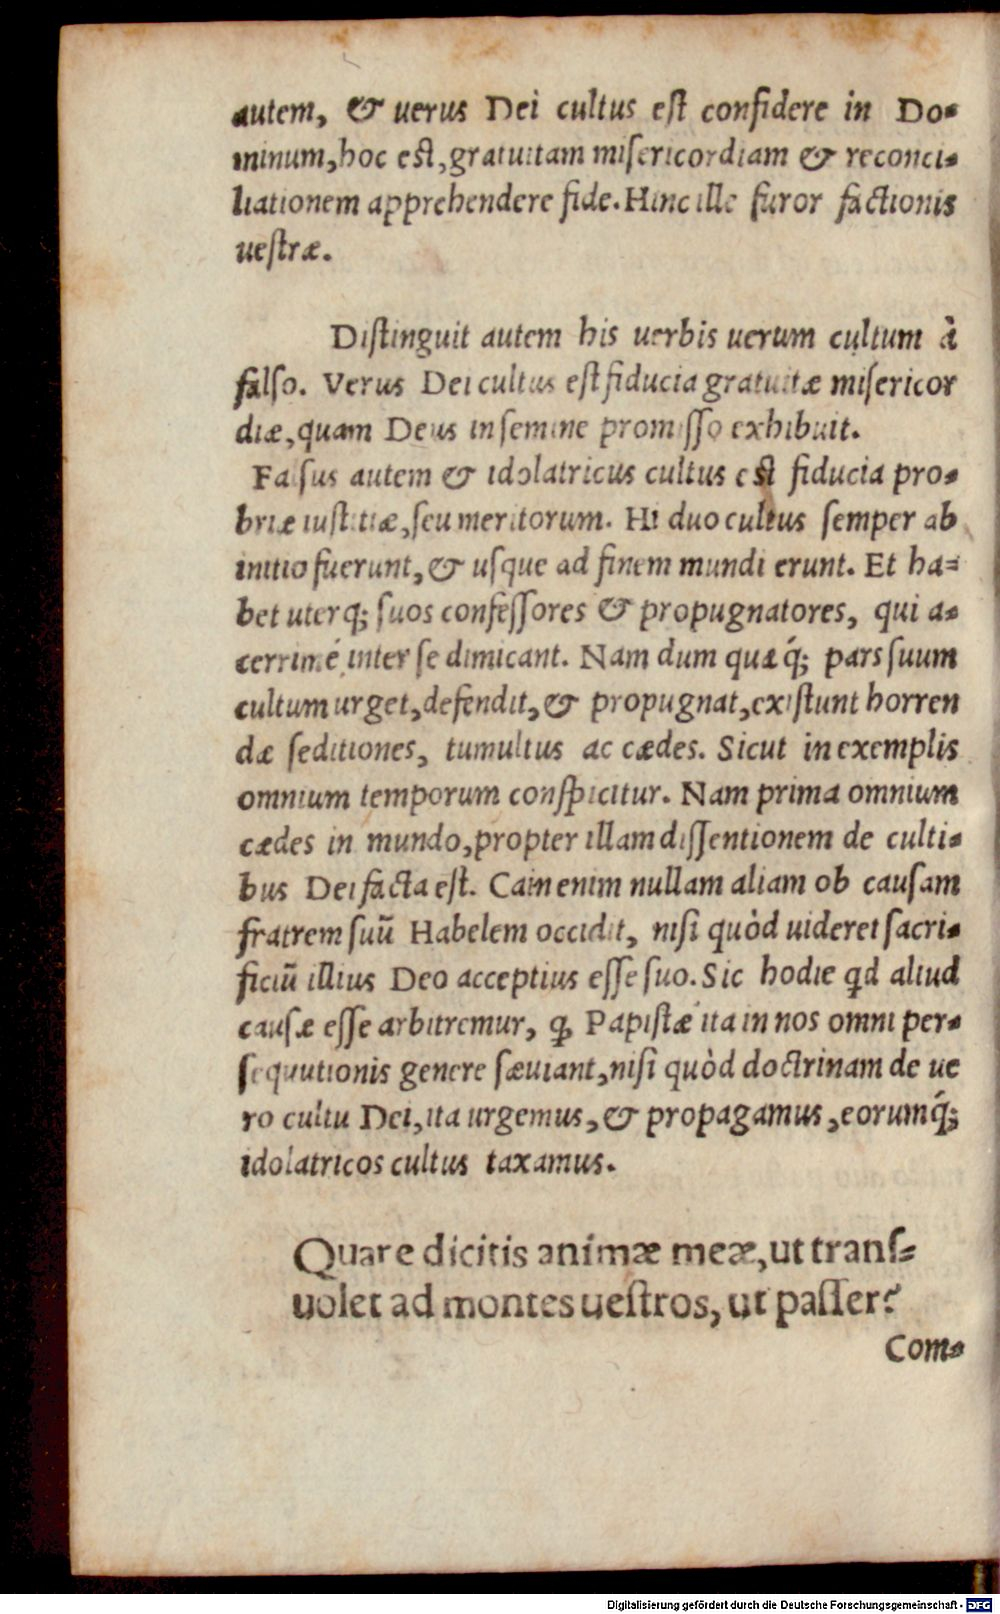 autem, & uerus Dei cultus est confidere in Do-
minum, hoc est, gratuitam misericordiam & reconci-
liationem apprehendere fide. Hinc ille furor factionis
uestræ.
Distinguit autem his uerbis uerum cultum à
falso. Verus Dei cultus est fiducia gratuitæ misericor
diæ, quam Deus in semine promisso exhibuit.
Falsus autem & idolatricus cultus est fiducia pro-
briæ iustitiæ, seu meritorum. Hi duo cultus semper ab
initio fuerunt, & usque ad finem mundi erunt. Et ha-
bet uterq; suos confessores & propugnatores, qui a-
cerrimé inter se dimicant. Nam dum quæq́; pars suum
cultum urget, defendit, & propugnat, existunt horren
dæ seditiones, tumultus ac cædes. Sicut in exemplis
omnium temporum conspicitur. Nam prima omnium
cædes in mundo, propter illam dissentionem de culti-
bus Dei facta est. Cain enim nullam aliam ob causam
fratrem suū Habelem occidit, nisi quòd uideret sacri-
ficiū illius Deo acceptius esse suo. Sic hodie qd aliud
causæ esse arbitremur, ꝙ Papistæ ita in nos omni per-
sequutionis genere sæuiant, nisi quòd doctrinam de ue
ro cultu Dei, ita urgemus, & propagamus, eorumq́;
idolatricos cultus taxamus.
Quare dicitis animæ meæ, ut trans-
uolet ad montes uestros, ut passer?
Com-
Digitalisierung gefördert durch die Deutsche Forschungsgemeinschaft - DFG